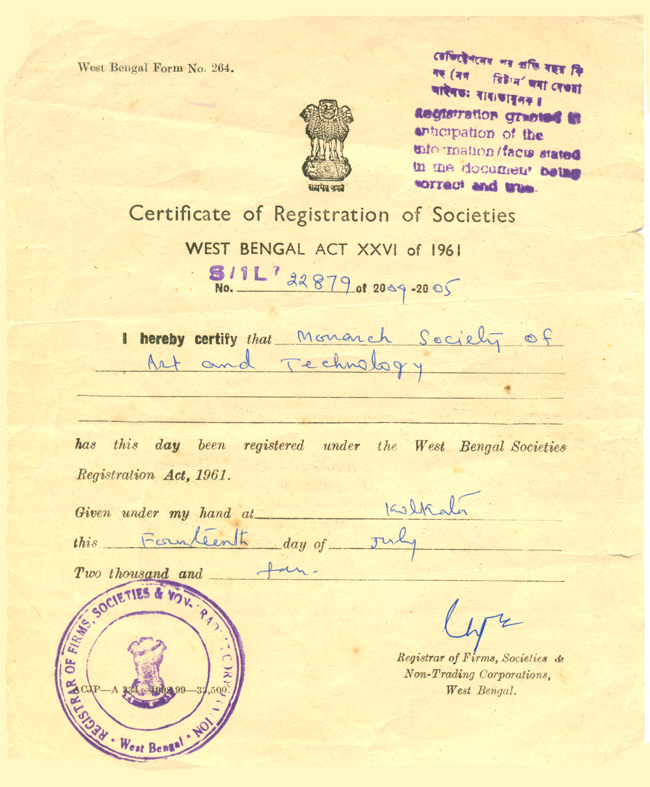 West Bengal Form No. 264.
রেজিষ্ট্রেশনের পর প্রতি বছর ফি
সহ রিটার্ন জমা দেওয়া
আইনতঃ বাধ্যতামূলক।
Registration granted in
anticipation of the
information/facts stated
in the document being
correct and true.
सत्यमेव जयते
Certificate of Registration of Societies
WEST BENGAL ACT XXVI of 1961
S/1L/
No. 22879 of 2004-2005
I hereby certify that Monarch Society of
Art and Technology
has this day been registered under the West Bengal Societies
Registration Act, 1961.
Given under my hand at Kolkata
this Fourteenth day of July
Two thousand and four.
REGISTRAR OF FIRMS, SOCIETIES & NON-TRADING CORPORATION
West Bengal
Registrar of Firms, Societies &
Non-Trading Corporations,
West Bengal.